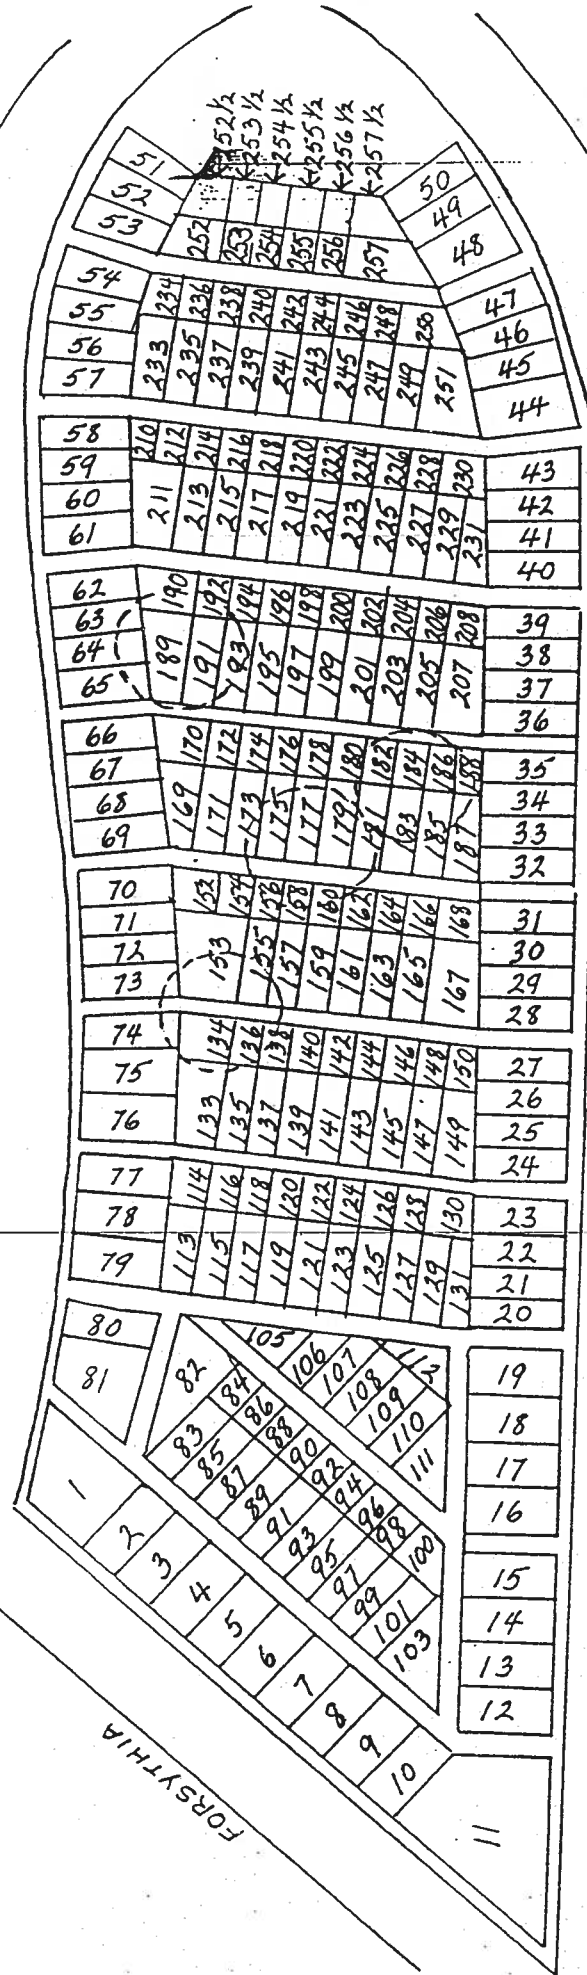 252 1/2
253 1/2
254 1/2
255 1/2
256 1/2
257 1/2
51
52
53
252 253 254 255 256 257
50
49
48
54
55
56
57
234 236 238 240 242 244 246 248 250
233 235 237 239 241 243 245 247 249 251
47
46
45
44
58
59
60
61
210 212 214 216 218 220 222 224 226 228 230
211 213 215 217 219 221 223 225 227 229 231
43
42
41
40
62
63
64
65
190 192 194 196 198 200 202 204 206 208
189 191 193 195 197 199 201 203 205 207
39
38
37
36
66
67
68
69
170 172 174 176 178 180 182 184 186 188
169 171 173 175 177 179 181 183 185 187
35
34
33
32
70
71
72
73
152 154 156 158 160 162 164 166 168
153 155 157 159 161 163 165 167
31
30
29
28
74
75
76
134 136 138 140 142 144 146 148 150
133 135 137 139 141 143 145 147 149
27
26
25
24
77
78
79
114 116 118 120 122 124 126 128 130
113 115 117 119 121 123 125 127 129 131
23
22
21
20
80
81
105 106 107 108 109 110 111 112
82 84 86 88 90 92 94 96 98 100
83 85 87 89 91 93 95 97 99 101 103
19
18
17
16
15
14
13
12
1
2
3
4
5
6
7
8
9
10
11
FORSYTHIA